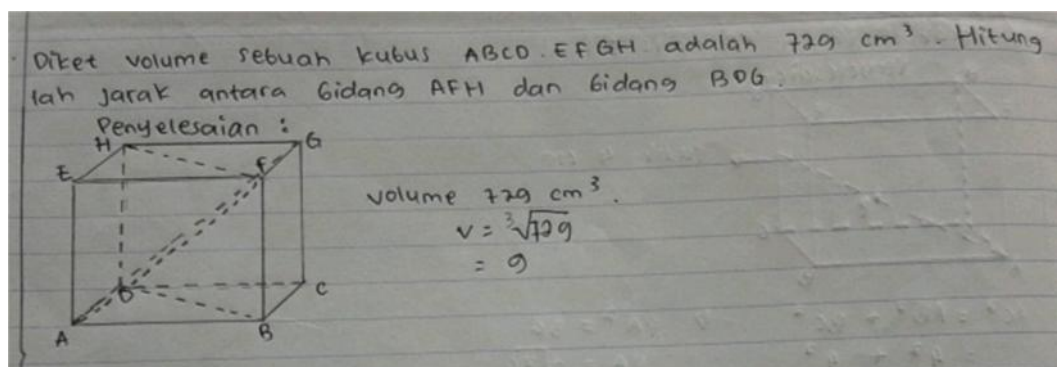 Diket volume sebuah kubus ABCD.EFGH adalah 729 cm³. Hitung
lah jarak antara bidang AFH dan bidang BDG.
Penyelesaian :
H
G
E
F
volume 729 cm³.
v = ³√729
= 9
D
C
A
B